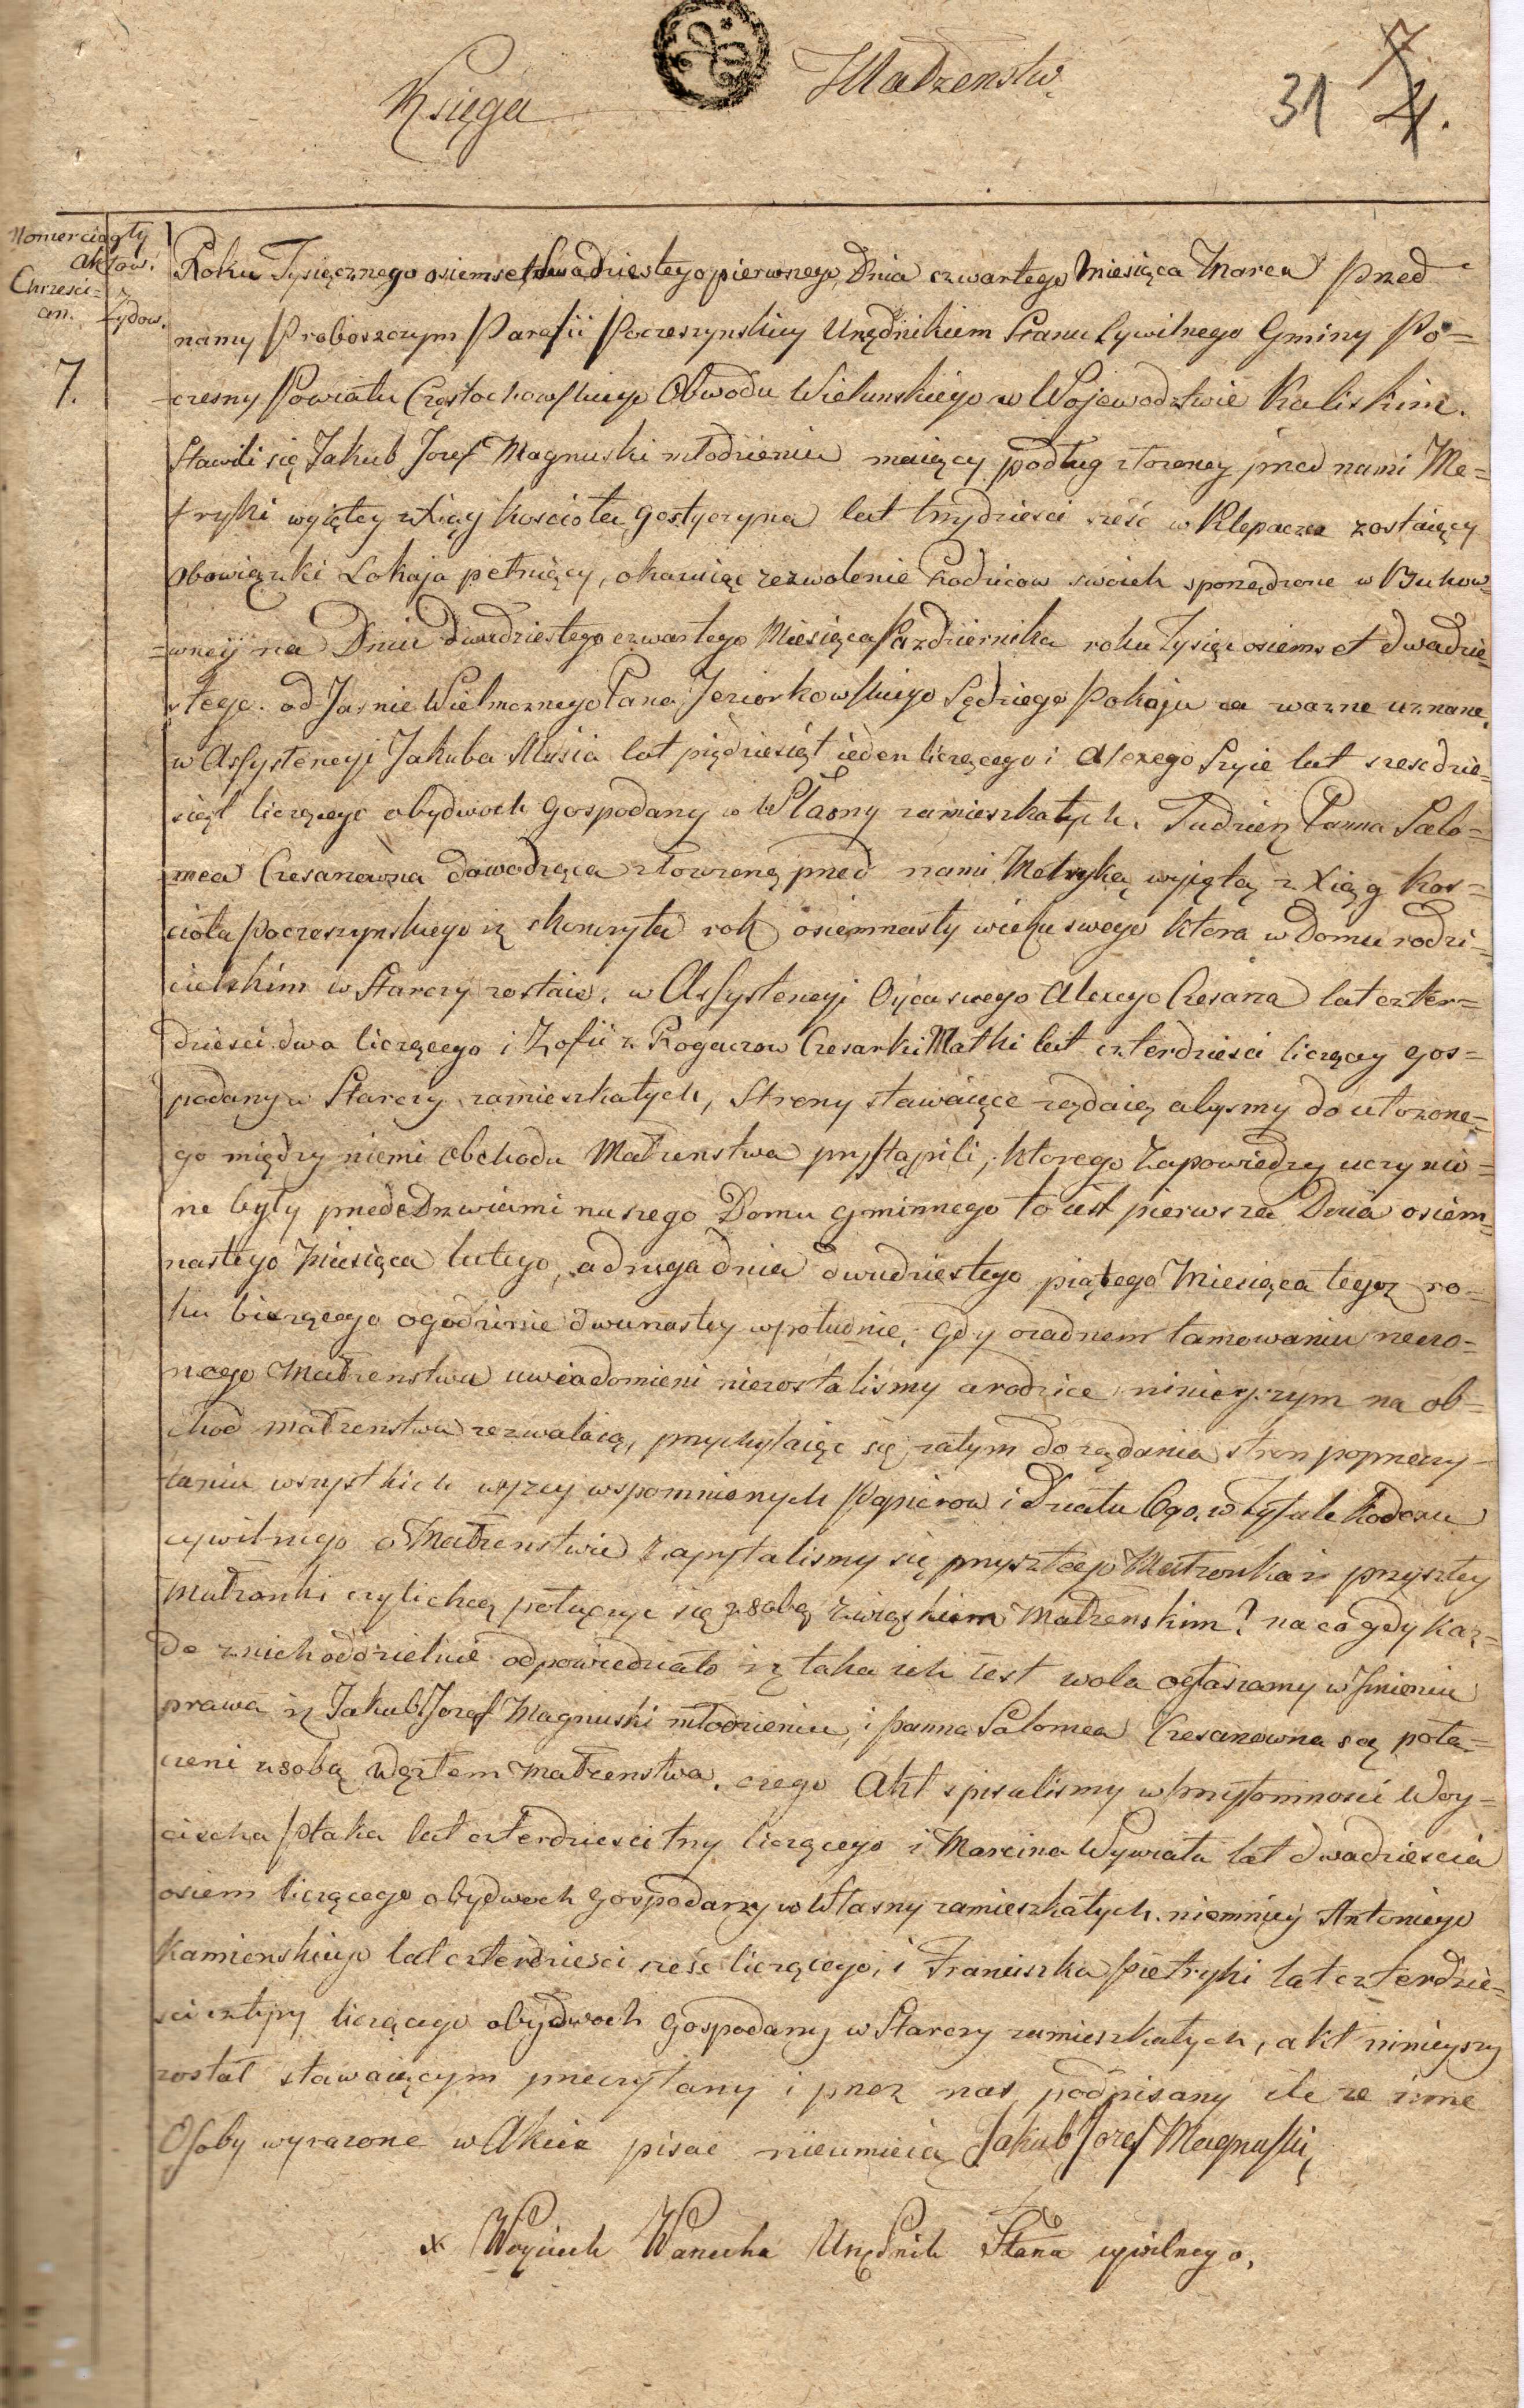 Księga Małżenstw.
31 7. 4.
Nomer ciągły
aktow.
Chrzesci=
an. Żydow.
7.
Roku Tysiącznego osiemset dwadziestego pierwszego, Dnia czwartego Miesiąca Marca Przed
namy Proboszczym Parafii Poczeszynskiey Urzędnikiem Stanu Cywilnego Gminy Po=
czesny Powiatu Częstochowskiego Obwodu Wielunskiego w Wojewodztwie Kaliskim.
Stawili się Jakub Jozef Magnuski młodzieniec maiący podług złozoney przed nami Me=
tryki wyiętey z Xiąg kosciola Gostyczyna lat trzydziesci szesc w Klepaczce zostaiący
Obowiązki Lokaja pełniący, okazuiąc zezwolenie Rodzicow swoich sporządzone w Bukow=
=wney na Dniu dwudziestego czwartego Miesiąca Pazdziernika roku Tysiąc osiemset dwadzie=
stego. od Jasnie Wielmoznego Pana Jeziorkowskiego Sędziego Pokoju za wazne uznane,
w Assystencyi Jakuba Musia lat pięcdziesiąt ieden liczącego i Alexego Szyie lat szescdzie=
siąt liczącego obydwoch Gospodarzy w Własny zamieszkałych. Tudziez Panna Salo=
mea Czesarzowna dowodząca złozoną przed nami Metryką wyiętą z Xiąg Kos=
ciola Poczeszynskiego iz skonczyła rok osiemnasty wieku swego ktora w Domu rodzi=
cielskim w Starczy zostaie, w Assystencyi Oyca swego Alexego Czesarza lat czter=
dziesci dwa liczącego i Zofii z Rogaczow Czesarki Matki lat czterdziesci liczącey gos=
podarzy w Starczy zamieszkałych, Strony stawaiące ządaią abysmy do ułozone=
go między niemi obchodu Małzenstwa przystąpili, ktorego Zapowiedzy uczynio=
ne były przededrzwiami naszego Domu gminnego to iest pierwsza Dnia osiem=
nastego Miesiąca lutego, a druga dnia dwudziestego piątego Miesiąca tegoz ro=
ku bieżącego ogodzinie dwunastey wpołudnie, gdy o zadnem tamowaniu rzeczo=
nego Małzenstwa uwiadomieni niezostalismy a rodzice ninieyszym na ob=
chod małzenstwa zezwalaią, przychylaiąc się zatym do ządania stron poprzeczy=
taniu wszystkich wyzey wspomnionych Papierow i Działu 6go. w Tytule Kodexu
cywilnego o Małzenstwie Zapytalismy się przyszłego Małzonka i przyszłey
Małzonki czyli chcą połączyc się z sobą Związkiem Małzenskim? na co gdy kaz=
de znich oddzielnie odpowiedziało iz taka ich iest wola ogłaszamy w Imieniu
prawa iz Jakub Jozef Magnuski młodzieniec, i panna Salomea Czesarzowna są połą=
czeni zsobą węzłem małzenstwa. czego Akt spisalismy w przytomnosci Woy=
ciecha Ptaka lat czterdziesci trzy liczącego i Marcina Wywiała lat dwadziescia
osiem liczącego obydwoch gospodarzy w Własny zamieszkałych. niemniey Antoniego
Kamienskiego lat czterdziesci szesc liczącego, i Franciszka Pietryki lat czterdzie=
sci cztery liczącego obydwoch Gospodarzy w Starczy zamieszkałych, akt ninieyszy
został stawaiącym przeczytany i przez nas podpisany ile ze inne
Osoby wyrazone w Akcie pisac nieumieią Jakub Jozef Magnuski,
x Woyciech Wanecha Urzędnik Stanu cywilnego,